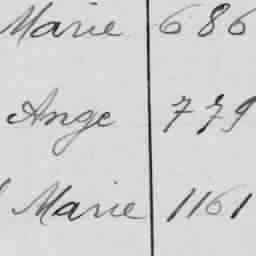 Marie 686
Ange 779
Marie 1161